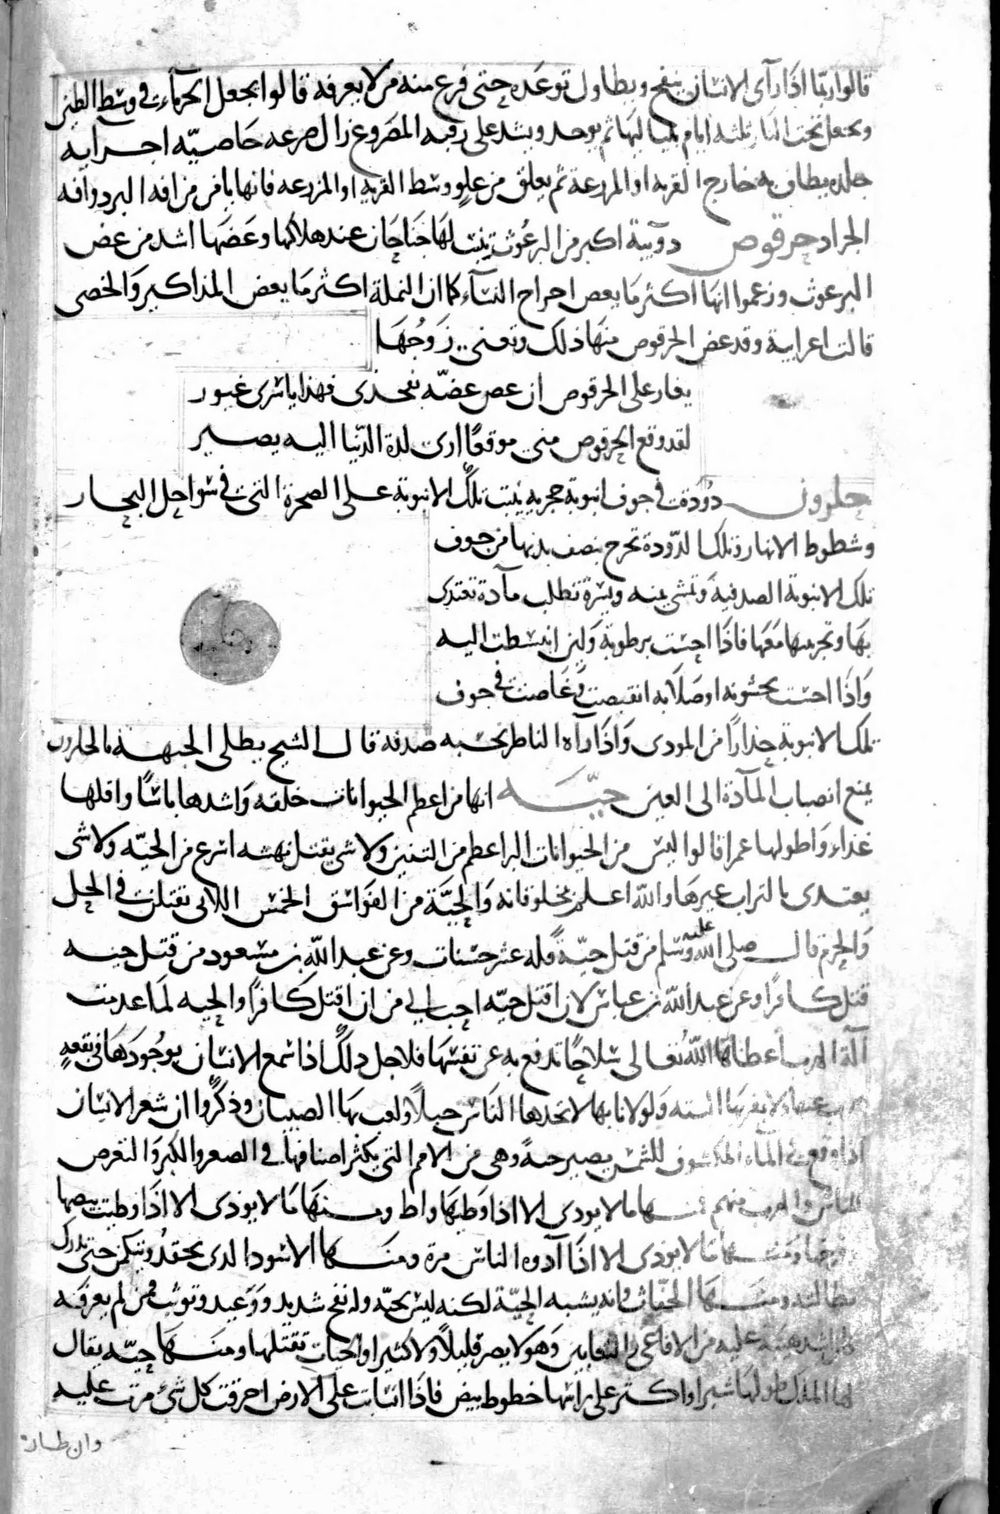 قالوا ربما اذا رآى الانسان ينفخ ويطاول توعده حتى فزع منه من لا يعرفه قالوا يجعل الحرباء في وسط الطين
ويجعل تحت النار ثلثة ايام بلياليها ثم يوخد ويشد على رقبه المصروع زال صرعه خاصيّه اخرى
جلده يطاف به خارج القريه او المزرعة ثم يعلق من علو وسط القريه او المزرعه فانها يامن من افه البرد وآفه
الجراد حرقوص دويبة اكبر من البرغوث ينبت لها جناحان عند هلاكها وعضها اشد من عض
البرغوث وزعموا انها اكثر ما يعض احراح النسآء كما ان النملة اكثر ما يعض المذاكير والخصى
قالت اعرابية وقد عض الحرقوص منها ذلك وتعنى زوجها
يغار على الحرقوص ان عص عضّه بفخذى فهذا يا شرى غيور
لقد وقع الحرقوص منى موقعًا ارى لدة الدّنيا اليه يصير
حلزون دودة في جوف انبوبة حجريه ينبت تلك الانبوبة على الصخرة التى في سواحل البحار
وشطوط الانهار وتلك الدّودة تخرج بنصف بدنها من جوف
تلك الانبوبة الصدفية وتمشى يمنه ويسرة تطلب مآدة تغتدى
بها وتجر بيتها معها فاذا احست برطوبة ولين انبسطت اليه
واذا احست بخشونه او صلابه انقبضت وغاصت في جوف
تلك الانبوبة حذارًا من المودى واذا رآه الناظر يحسبه صدفه قال الشيخ يطلى الجبهه بالحلزون
يمنع انصباب المآدة الى العين حيّه انها من اعظم الحيوانات خلقه واشدها باسًا واقلها
غذاء واطولها عمرا قالوا ليس من الحيوانات البر اعظم من التنين ولا شى يقتل نهشه اسرع من الحيّه ولا شى
يعتدى بالتراب غيرها والله اعلم بمخلوقاته والحيّة من الفواسق الخمس اللاتى تقتلن في الحل
والحرم قال صلى الله عليه وسلم من قتل حيّةً فله عشر حسنات وعن عبد الله بن مسعود من قتل حيه
قتل كافرًا وعن عبد الله بن عباس لان اقتل حيّه احب الي من ان اقتل كافرًا والحيه لما عدمت
آلة الهرب أعطاها اللهُ تعالى سلاحًا تدفع به عن نفسها فلاجل ذلك اذا سمع الانسان بوجودها في بقعهٍ
يهرب عنها ولا يقربها البته ولولا نابها لاتخدها الناس حبلاً ولعب بها الصبيان وذكروا ان شعر الانسان
اذا وقع في المآء المكشوف للشمس يصير حيةً وهى من الامم التى يكثر اصنافها في الصغر والكبر والتعرض
للناس والهرب منهم منها ما لا يودى الا اذا وطيها واط ومنها ما لا يودى الا اذا وطيت بيضها
وفرخها ومنها ما لا يودى الا اذا آدوه الناس مرة ومنها الاسود الدى يحقد ويتمكن حتى يدرك
بطالته ومنها الحفاث وانه يشبه الحيّة لكنه ليس بحيّه وله نفخ شديد ووعيد وتوثب فمن لم يعرفه
كان اشد هيبة عليه من الافاعى والثعابين وهو لا يضر قليلاً ولا كثيرا والحيات تقتلها ومنها حيّه يقال
لها الملك طولها شبرا واكثر على راسها خطوط بيض فاذا انسابت على الارض احرقت كل شئ مرت عليه
وان طار